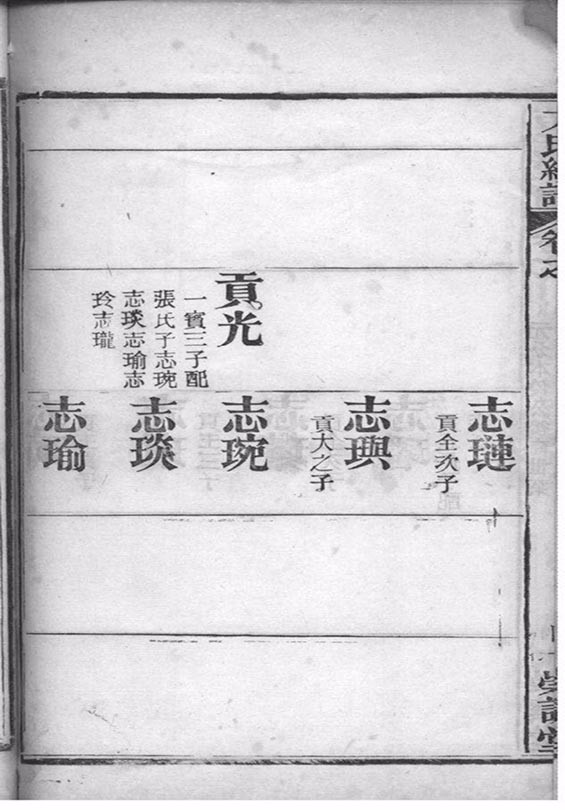 貢光
一賓三子配
張氏子志琬
志琰志瑜志
玲志瓏
志璉
貢全次子
志璵
貢大之子
志琬
志琰
志瑜